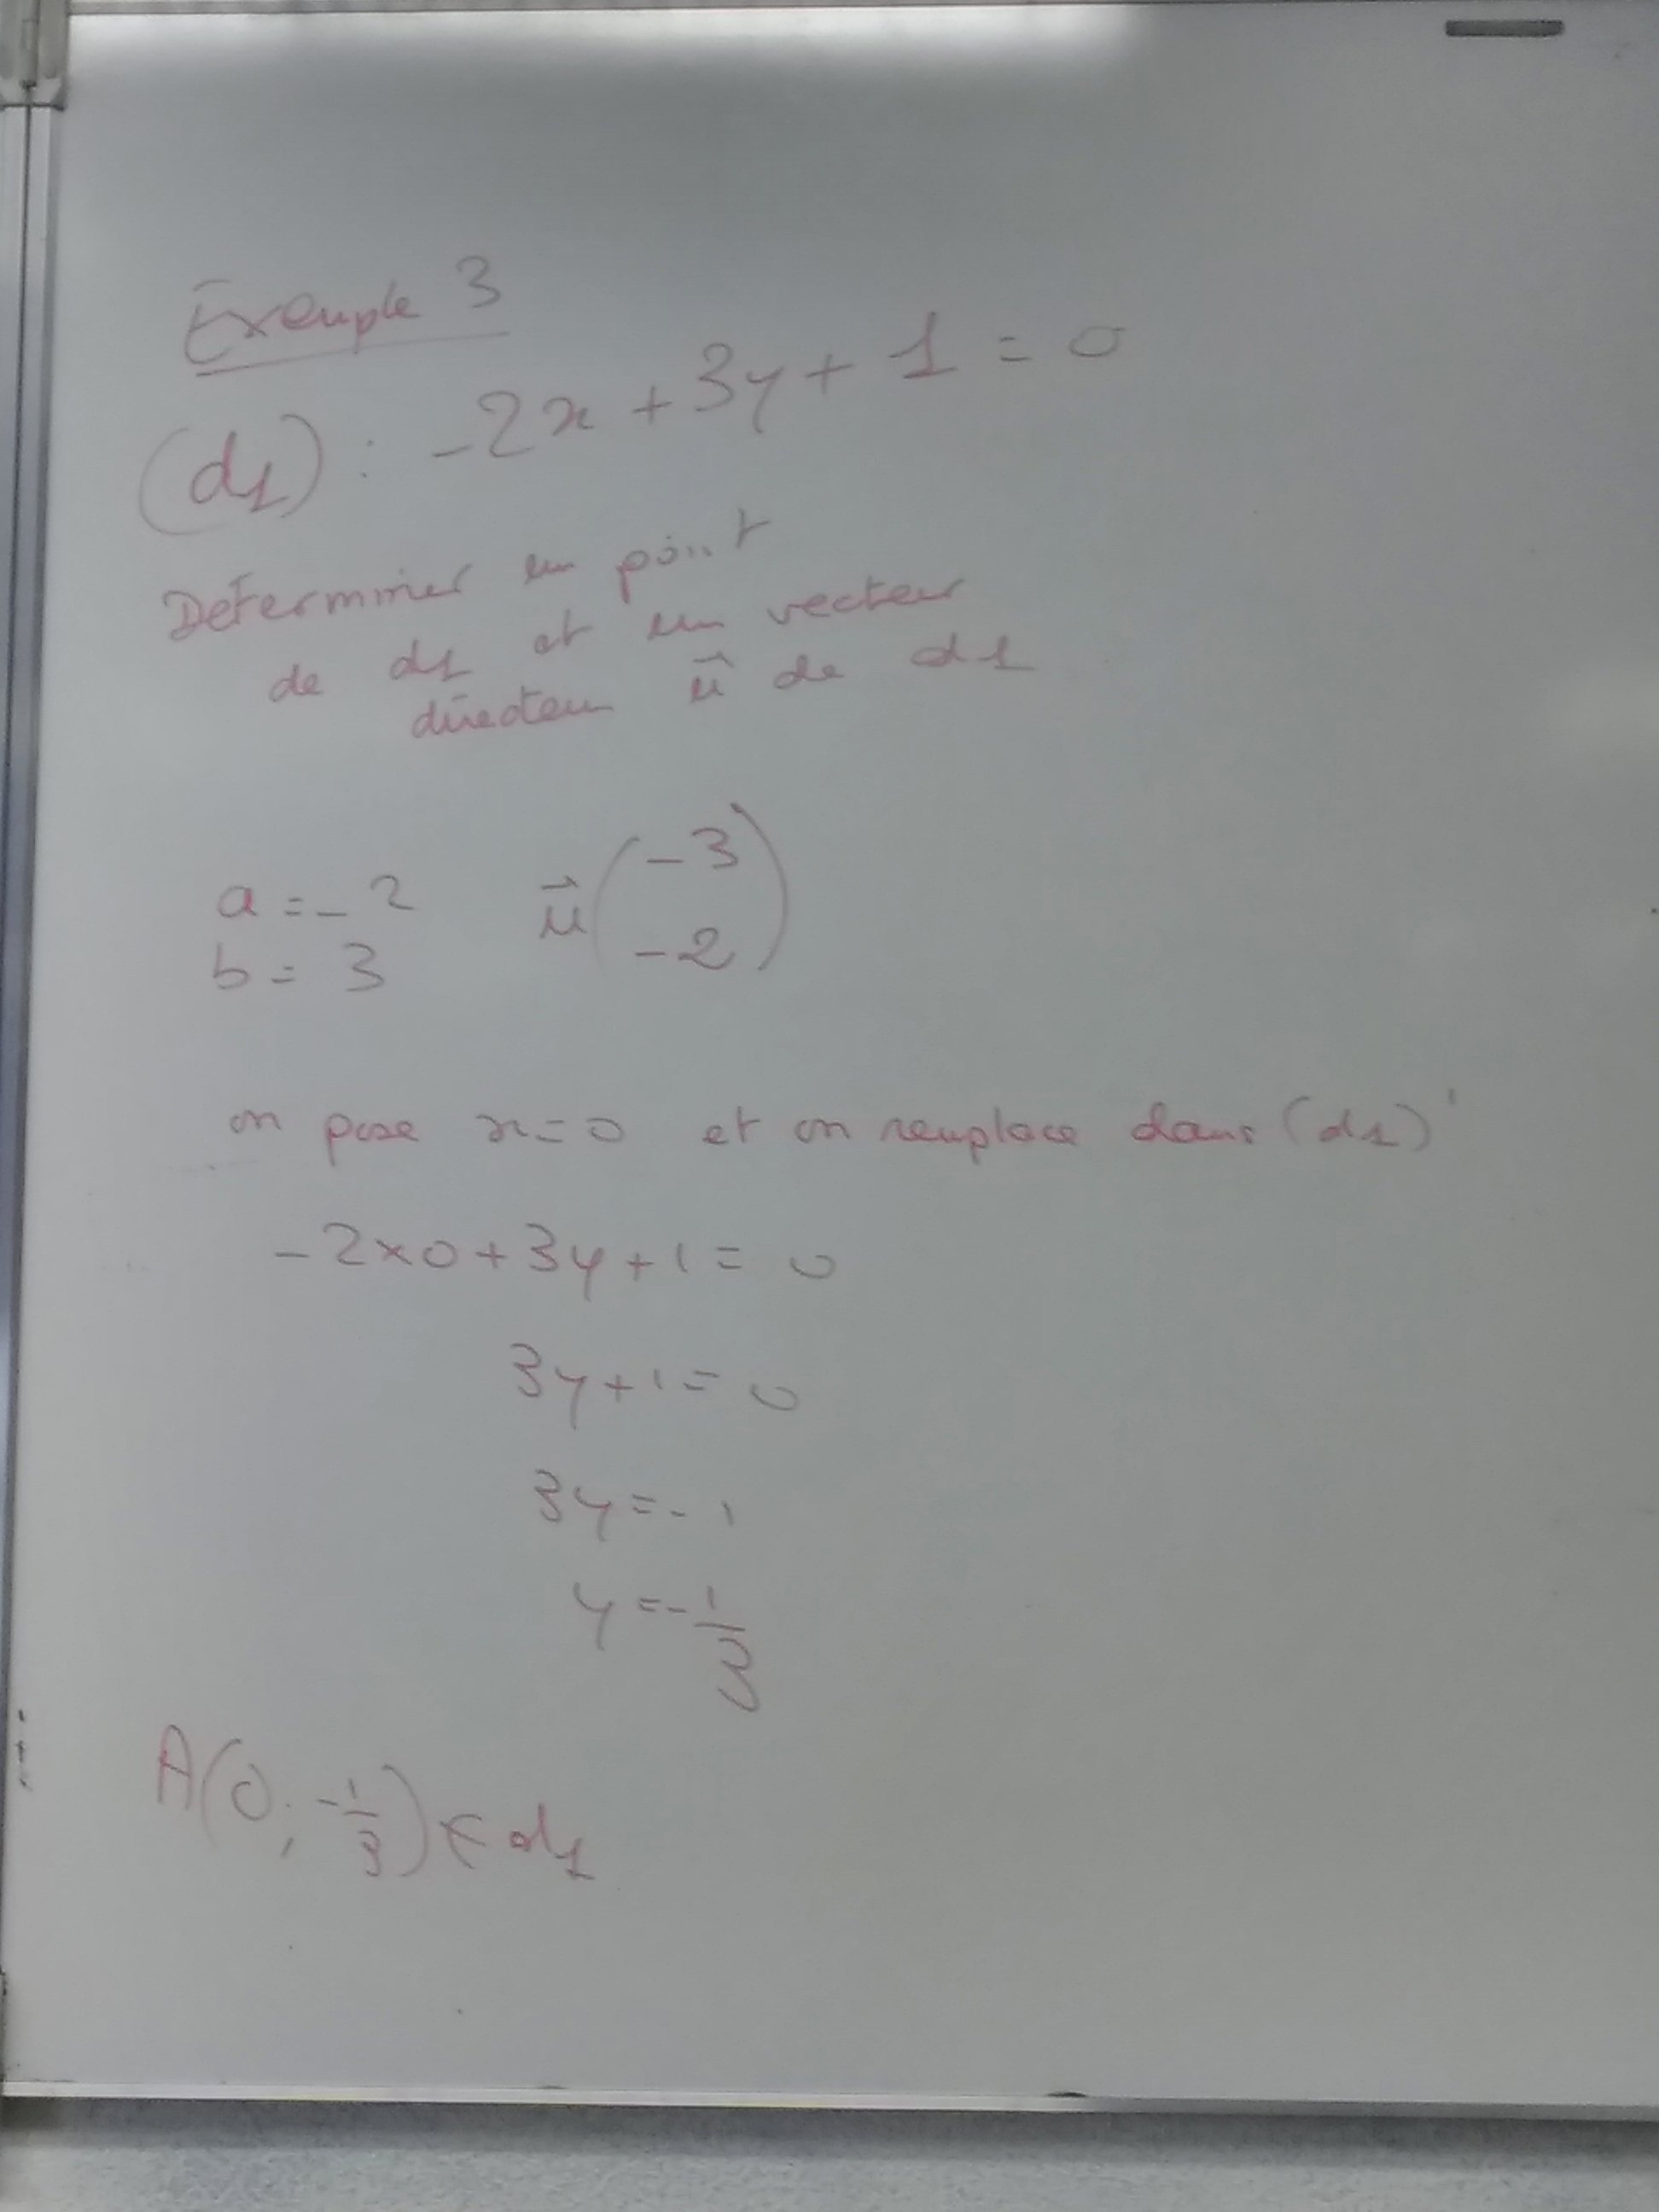 Exemple 3
(d1) : -2x + 3y + 1 = 0
Determiner un point
de d1 et un vecteur
directeur u⃗ de d1
a = -2
b = 3
u⃗ (-3
-2)
on pose x=0 et on remplace dans (d1)
-2×0+3y+1=0
3y+1=0
3y=-1
y=-1/3
A(0; -1/3) ∈ d1